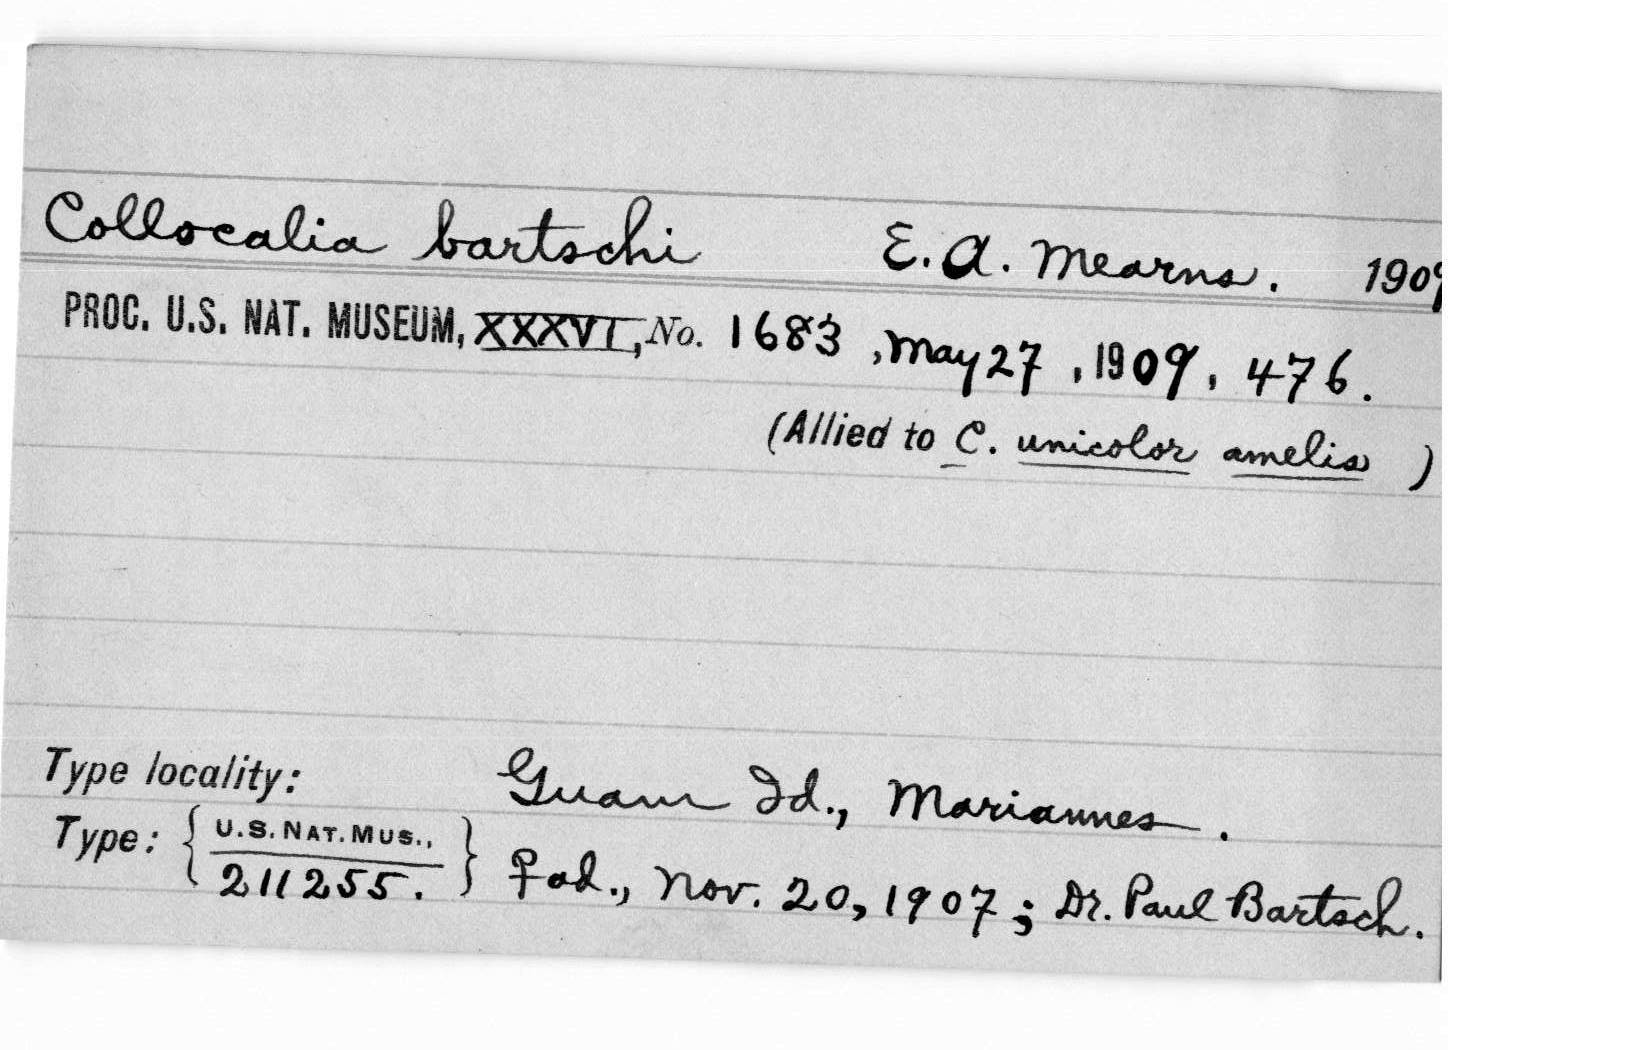 Collocalia bartschi E. A. Mearns. 1909
PROC. U.S. NAT. MUSEUM, XXXVI, No. 1683, May 27, 1909, 476.
(Allied to C. unicolor amelis)
Type locality: Guam Id., Mariannes.
Type: { U.S. NAT. MUS.,
211255. } ♀ ad., Nov. 20, 1907; Dr. Paul Bartsch.